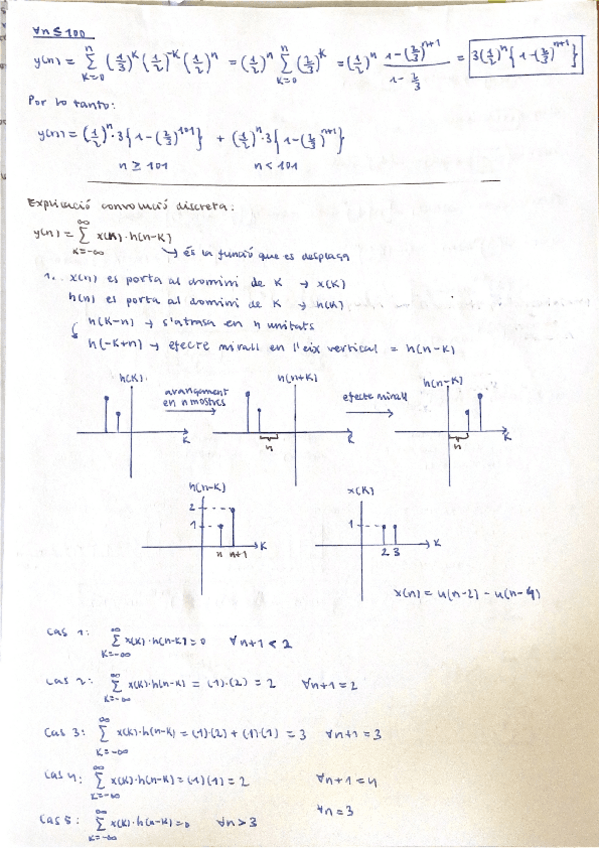 ∀n ≤ 100
y(n) = ∑_{K=0}^{n} (1/3)^K (1/2)^{-K} (1/2)^n = (1/2)^n ∑_{K=0}^{n} (2/3)^K = (1/2)^n (1-(2/3)^{n+1})/(1-2/3) = 3(1/2)^n {1-(2/3)^{n+1}}
Por lo tanto:
y(n) = (1/2)^n·3{1-(2/3)^{101}} + (1/2)^n·3{1-(2/3)^{n+1}}
n ≥ 101 n < 101
Explicació convolució discreta:
y(n) = ∑_{K=-∞}^{∞} x(K)·h(n-K)
→ és la funció que es desplaça
1. x(n) es porta al domini de K → x(K)
h(n) es porta al domini de K → h(K)
h(K-n) → s'atrasa en n unitats
h(-K+n) → efecte mirall en l'eix vertical = h(n-K)
h(K) h(n+K) h(n-K)
avançament en n mostres efecte mirall
K K K
n n
h(n-K) x(K)
2
1 1
n n+1 K 2 3 K
x(n) = u(n-2) - u(n-4)
Cas 1: ∑_{K=-∞}^{∞} x(K)·h(n-K) = 0 ∀n+1 < 2
Cas 2: ∑_{K=-∞}^{∞} x(K)·h(n-K) = (1)·(2) = 2 ∀n+1 = 2
Cas 3: ∑_{K=-∞}^{∞} x(K)·h(n-K) = (1)·(2) + (1)·(1) = 3 ∀n+1 = 3
Cas 4: ∑_{K=-∞}^{∞} x(K)·h(n-K) = (1)(1) = 2 ∀n+1 = 4
∀n = 3
Cas 5: ∑_{K=-∞}^{∞} x(K)·h(n-K) = 0 ∀n > 3